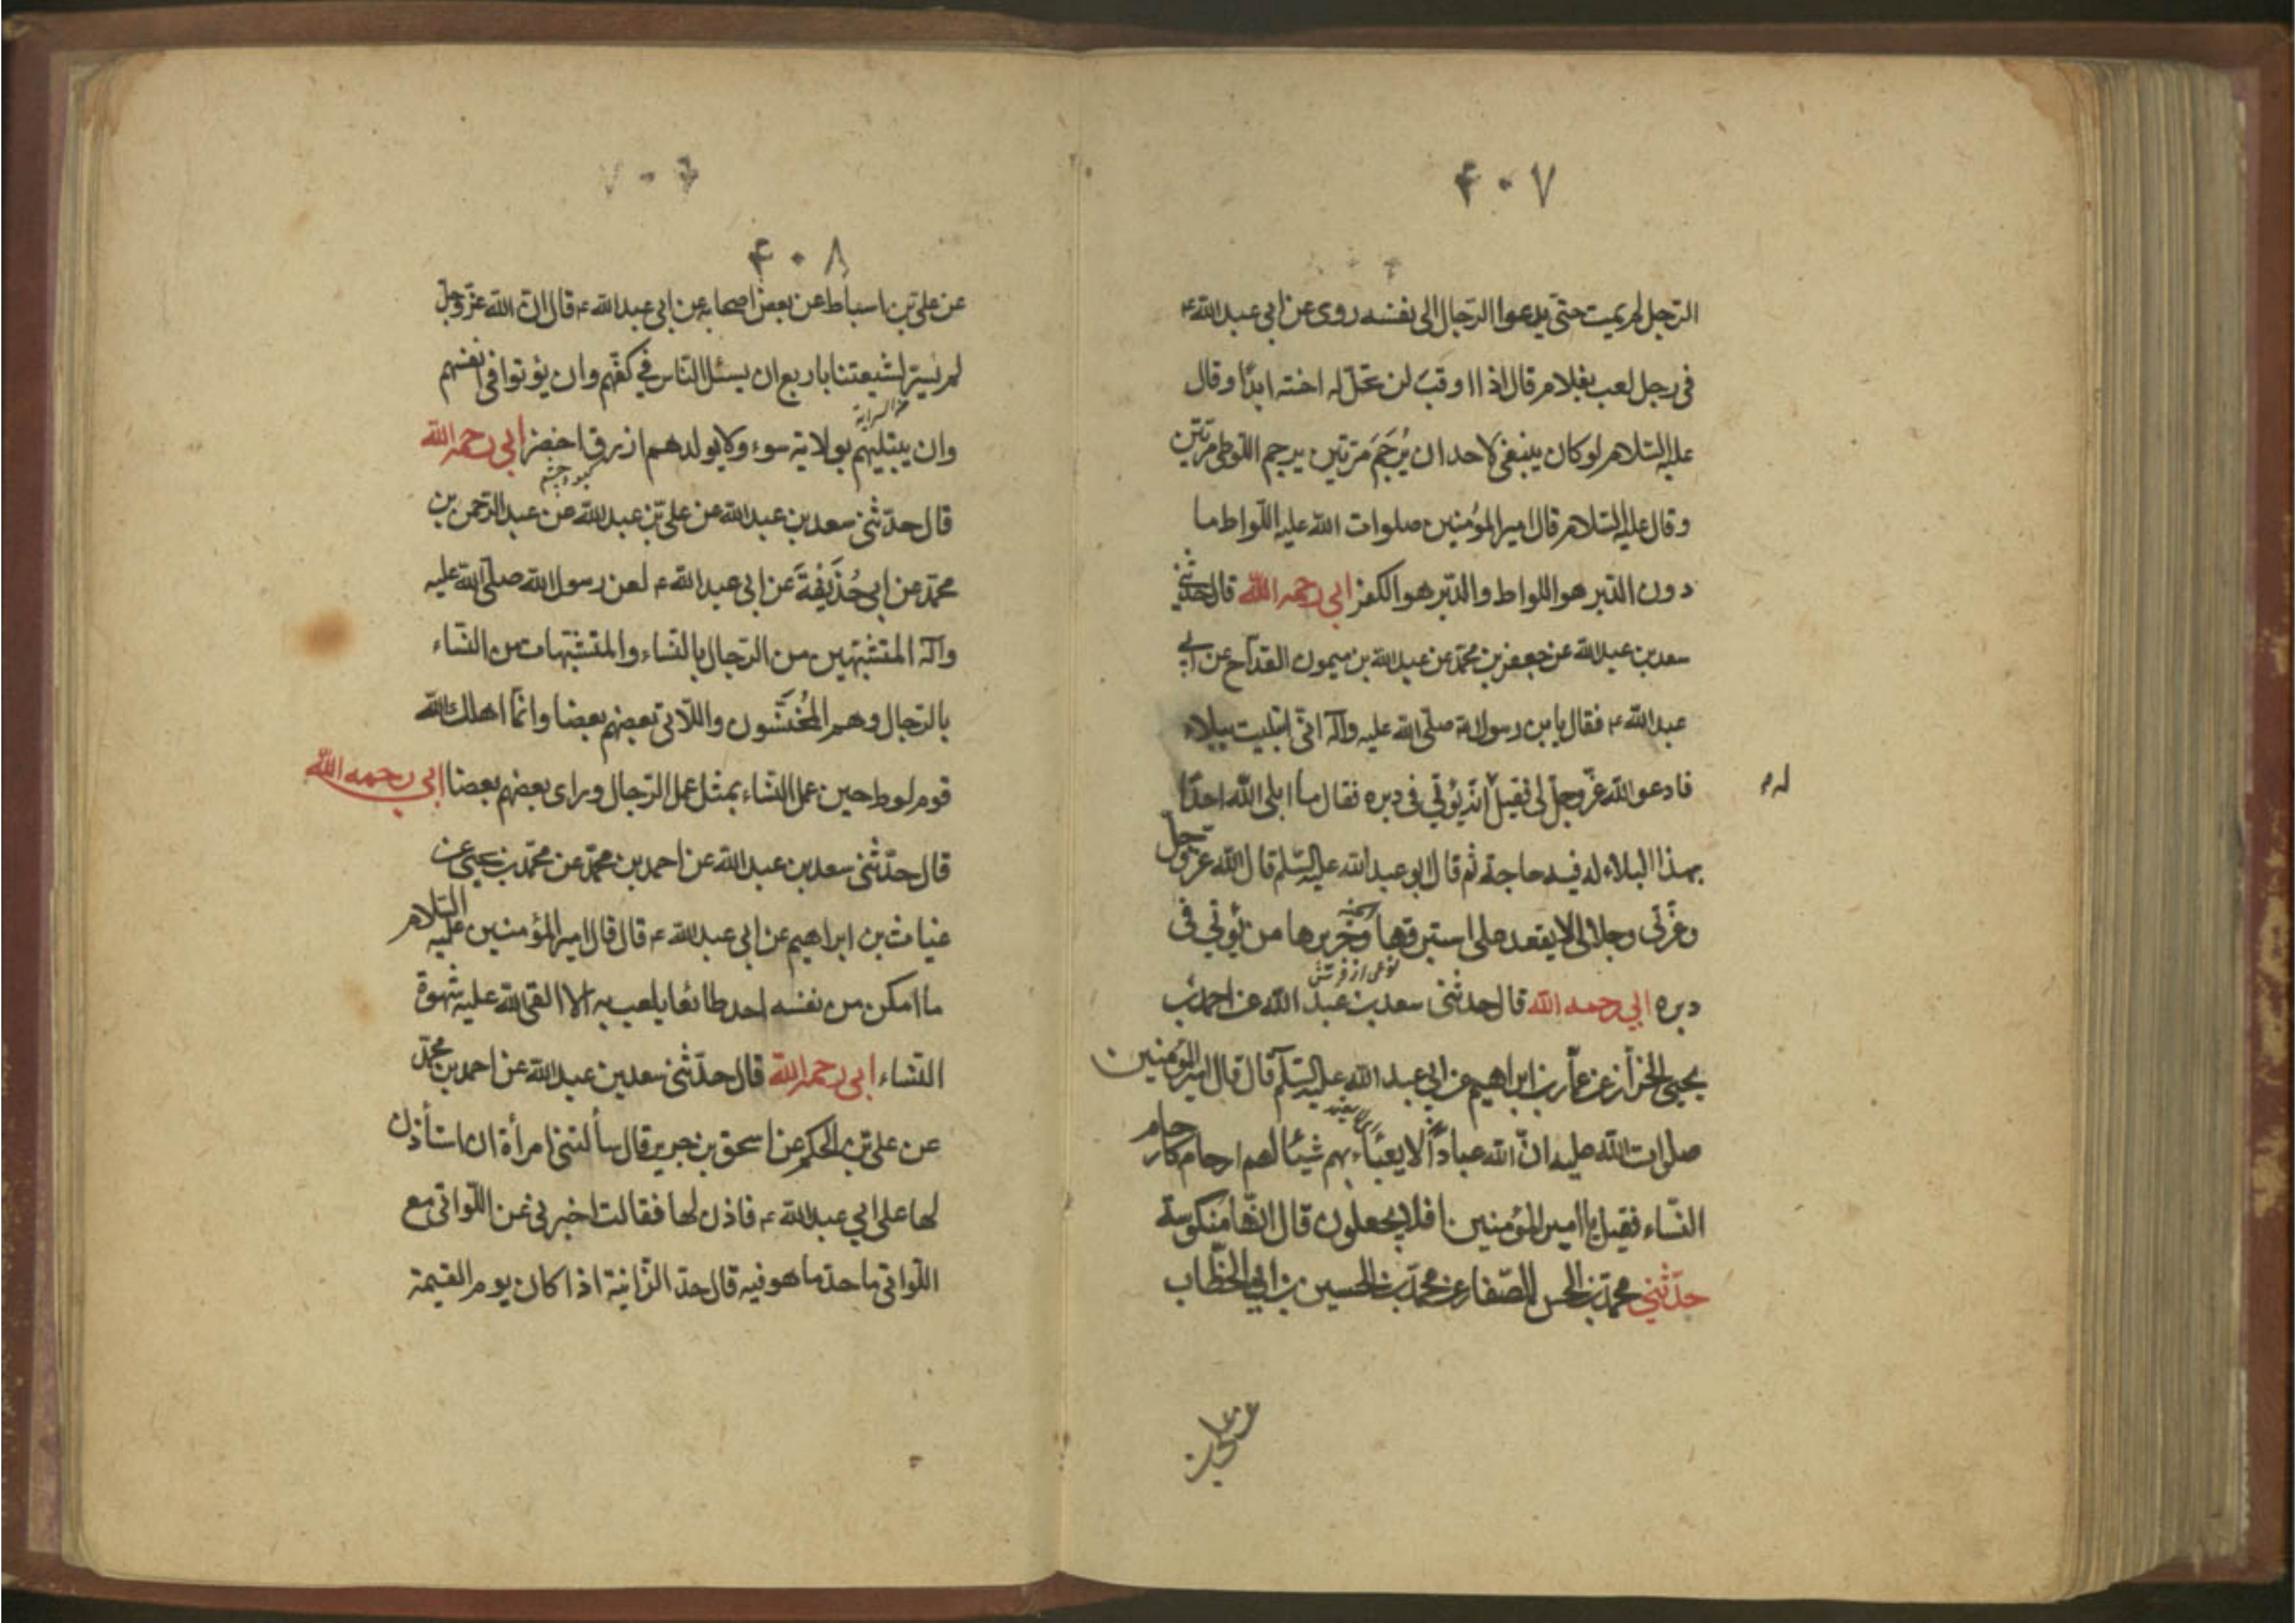 ۴۰۷
الرّجل لم يمت حتّى يدعوا الرّجال الى نفسه روى عن ابي عبد الله ع
فى رجل لعب بغلام قال اذا اوقب لن تحلّ له اخته ابدًا وقال
عليه السّلام لو كان ينبغى لاحد ان يُرجَمَ مَرّتين يرجم اللّوطى مرّتين
وقال عليه السّلام قال امير المؤمنين صلوات الله عليه اللّواط ما
دون الدّبر هو اللواط والدّبر هو الكفر ابى رحمه الله قال حدّثني
سعد بن عبد الله عن جعفر بن محمّد عن عبد الله بن ميمون القدّاح عن ابي
عبد الله ع فقال يا بن رسول الله صلّى الله عليه وآله انّى ابتليت ببلاء
فادعو الله عزّ وجلّ لى فقيل انّه يُؤتى فى دبره فقال ما ابلى الله احدًا
له م
بهذا البلاء له فيه حاجة ثم قال ابو عبد الله عليه السّلم قال الله عزّ وجلّ
وعزّتى وجلالى لا يقعد على استبرقها وحَريرها من يُؤتى فى
نوعى از فرش
دبره ابي رحمه الله قال حدثنى سعد بن عبد الله عن احمد بن
يحيى الخزّاز عن عمّار بن ابراهيم عن ابي عبد الله عليه السّلم قال قال امير المؤمنين
صلوات الله عليه انّ الله عبادًا لا يعبَأ بهم شيئا لهم ارحام كارحام
النّساء فقيل يا امير المؤمنين افلا يحملون قال انّها منكوسة
حدّثني محمّد بن الحسن الصّفار عن محمّد بن الحسين بن ابي الخطّاب
عن على بن
۴۰۸
عن على بن اسباط عن بعض اصحابه عن ابى عبد الله ع قال انّ الله عزّ وجلّ
لم يبتل شيعتنا باربع ان يسئل النّاس في كفّهم وان يؤتوا فى انفسهم
وان يبتليهم بولاية سوء ولا يولد لهم ازرق اخضر ابى رحمه الله
قال حدّثنى سعد بن عبد الله عن على بن عبد الله عن عبد الرّحمن بن
محمّد عن ابى خُذَيفَةَ عن ابى عبد الله ع لعن رسول الله صلّى الله عليه
وآله المتشبّهين من الرّجال بالنّساء والمتشبّهات من النّساء
بالرّجال وهم المُخنَّثون واللّاتى بعضهم بعضا وانّما اهلك الله
قوم لوط حين عمل النّساء بمثل عمل الرّجال وراى بعضهم بعضا ابى رحمه الله
قال حدّثنى سعد بن عبد الله عن احمد بن محمّد عن محمّد بن يحيى عن
غياث بن ابراهيم عن ابى عبد الله ع قال قال امير المؤمنين عليه السّلام
ما امكن من نفسه احد طائعا يلعب به الا القى الله عليه شهوة
النّساء ابى رحمه الله قال حدّثنى سعد بن عبد الله عن احمد بن محمّد
عن على بن الحكم عن اسحق بن جرير قال سألتنى امرأة ان استأذن
لها على ابي عبد الله ع فاذن لها فقالت اخبرنى عن اللّواتى مع
اللّواتى ما حدّ ما هو فيه قال حدّ الزّانية اذا كان يوم القيمة